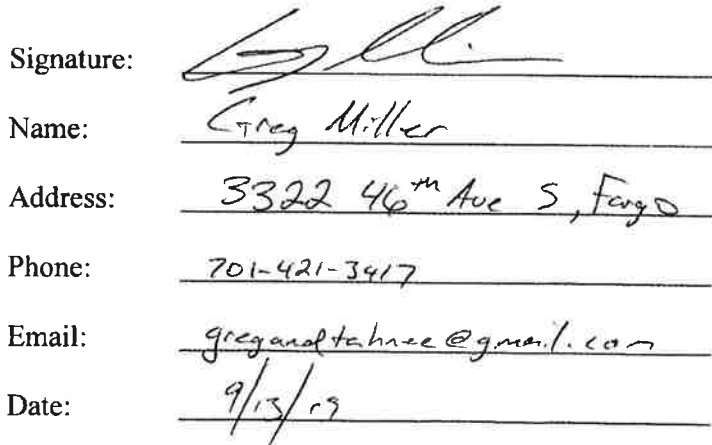 Signature:
Name: Greg Miller
Address: 3322 46th Ave S, Fargo
Phone: 701-421-3417
Email: gregandtahnee@gmail.com
Date: 9/13/19